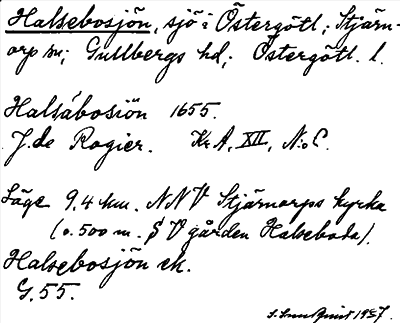 Halsebosjön, sjö i Östergötl., Stjärn-
orp sn; Gullbergs hd; Östergötl. l.
Halsåbosiön 1655.
J. de Rogier. Kr A, XII, N:o C.
Läge 9,4 km. NNV Stjärnorps kyrka
(o. 500 m. SV gården Halseboda).
Halsebosjön ek.
G. 55.
S. Lundqvist 1927.